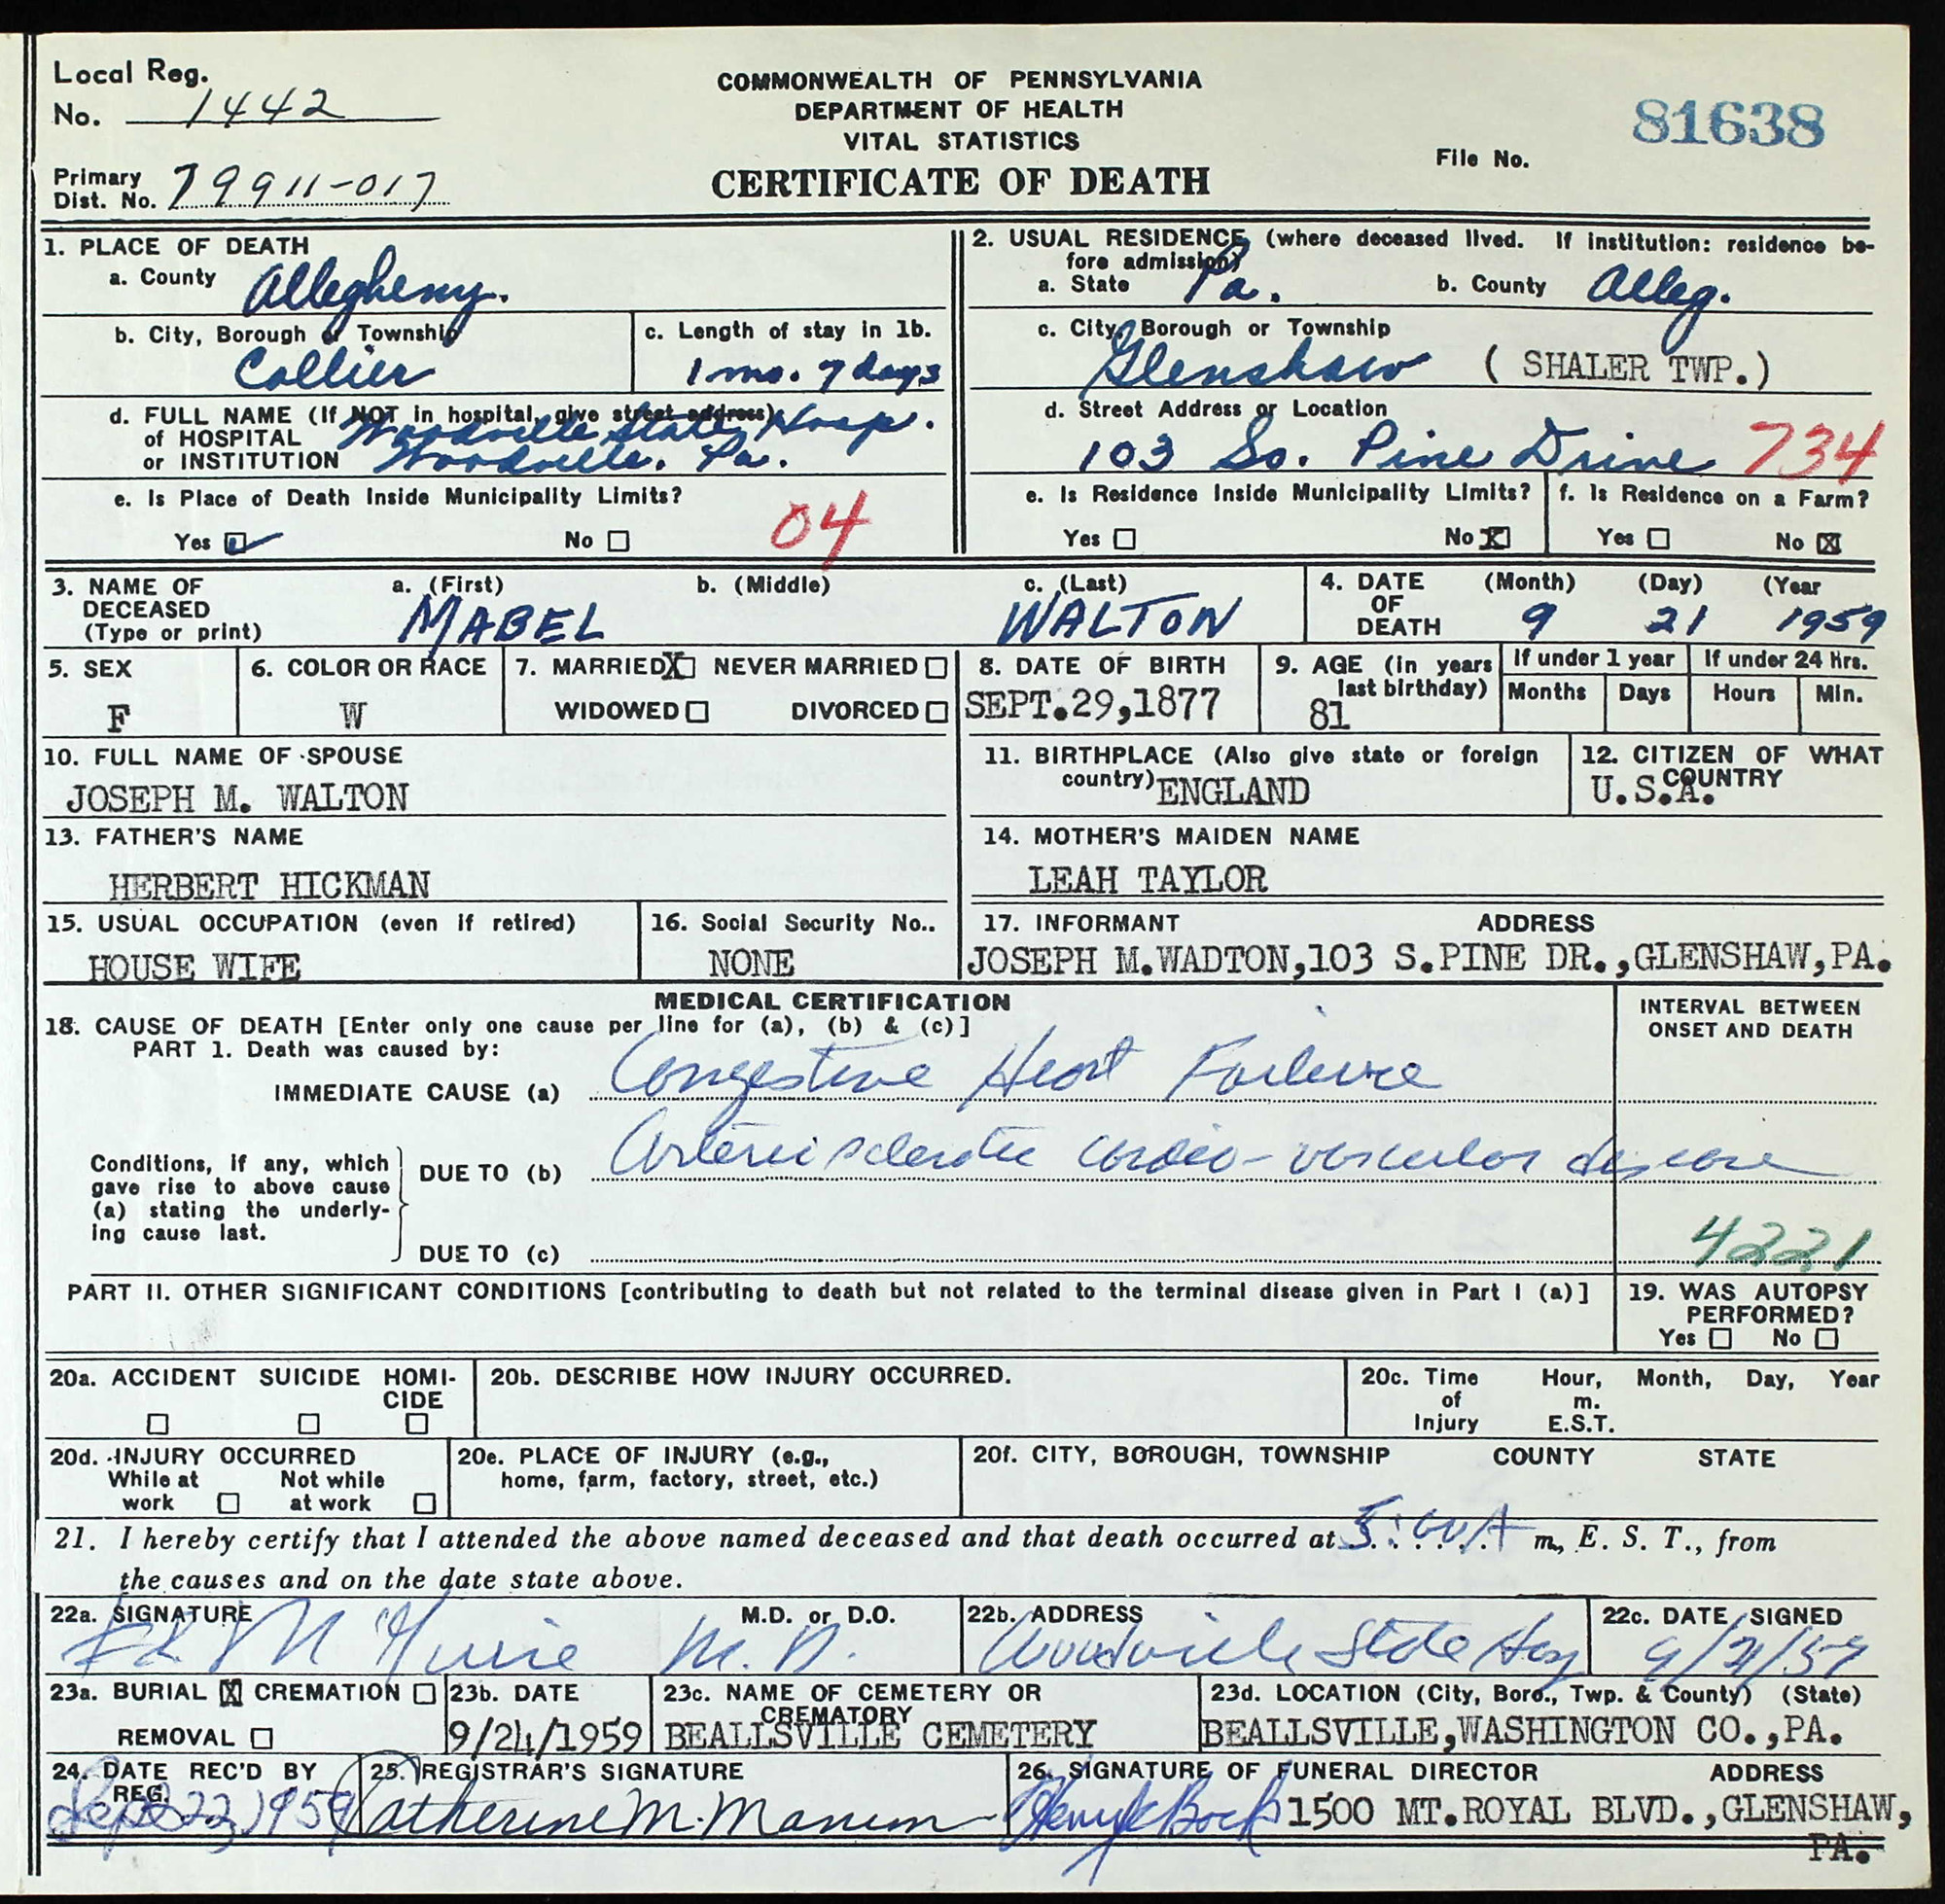 Local Reg.
No. 1442
COMMONWEALTH OF PENNSYLVANIA
DEPARTMENT OF HEALTH
VITAL STATISTICS
CERTIFICATE OF DEATH
81638
File No.
Primary
Dist. No. 79911-017
1. PLACE OF DEATH
a. County Allegheny.
b. City, Borough or Township
Collier
c. Length of stay in 1b.
1 mo. 7 days
d. FULL NAME (If NOT in hospital, give street address)
of HOSPITAL
or INSTITUTION
Woodville State Hosp.
Woodville, Pa.
e. Is Place of Death Inside Municipality Limits?
Yes ☑ No ☐ 04
2. USUAL RESIDENCE (where deceased lived. If institution: residence be-
fore admission)
a. State Pa. b. County Alleg.
c. City, Borough or Township
Glenshaw (SHALER TWP.)
d. Street Address or Location
103 So. Pine Drive 734
e. Is Residence Inside Municipality Limits?
Yes ☐ No ☒
f. Is Residence on a Farm?
Yes ☐ No ☒
3. NAME OF
DECEASED
(Type or print)
a. (First) b. (Middle) c. (Last)
MABEL WALTON
4. DATE
OF
DEATH
(Month) (Day) (Year
9 21 1959
5. SEX
F
6. COLOR OR RACE
W
7. MARRIED ☒ NEVER MARRIED ☐
WIDOWED ☐ DIVORCED ☐
8. DATE OF BIRTH
SEPT.29,1877
9. AGE (in years
last birthday)
81
If under 1 year
Months Days
If under 24 Hrs.
Hours Min.
10. FULL NAME OF SPOUSE
JOSEPH M. WALTON
11. BIRTHPLACE (Also give state or foreign
country) ENGLAND
12. CITIZEN OF WHAT
COUNTRY
U.S.A.
13. FATHER'S NAME
HERBERT HICKMAN
14. MOTHER'S MAIDEN NAME
LEAH TAYLOR
15. USUAL OCCUPATION (even if retired)
HOUSE WIFE
16. Social Security No..
NONE
17. INFORMANT ADDRESS
JOSEPH M.WADTON,103 S.PINE DR.,GLENSHAW,PA.
MEDICAL CERTIFICATION
18. CAUSE OF DEATH [Enter only one cause per line for (a), (b) & (c)]
PART 1. Death was caused by:
INTERVAL BETWEEN
ONSET AND DEATH
IMMEDIATE CAUSE (a) Congestive Heart Failure
Conditions, if any, which
gave rise to above cause
(a) stating the underly-
ing cause last.
DUE TO (b) Arteriosclerotic cardio-vascular disease
DUE TO (c)
4221
PART II. OTHER SIGNIFICANT CONDITIONS [contributing to death but not related to the terminal disease given in Part I (a)]
19. WAS AUTOPSY
PERFORMED?
Yes ☐ No ☐
20a. ACCIDENT SUICIDE HOMI-
CIDE
☐ ☐ ☐
20b. DESCRIBE HOW INJURY OCCURRED.
20c. Time
of
Injury
Hour,
m.
E.S.T.
Month, Day, Year
20d. INJURY OCCURRED
While at
work ☐
Not while
at work ☐
20e. PLACE OF INJURY (e.g.,
home, farm, factory, street, etc.)
20f. CITY, BOROUGH, TOWNSHIP COUNTY STATE
21. I hereby certify that I attended the above named deceased and that death occurred at 5:00 A m., E. S. T., from
the causes and on the date state above.
22a. SIGNATURE M.D. or D.O.
McGuire M.D.
22b. ADDRESS
Woodville State Hosp
22c. DATE SIGNED
9/21/59
23a. BURIAL ☒ CREMATION ☐
REMOVAL ☐
23b. DATE
9/24/1959
23c. NAME OF CEMETERY OR
CREMATORY
BEALLSVILLE CEMETERY
23d. LOCATION (City, Boro., Twp. & County) (State)
BEALLSVILLE,WASHINGTON CO.,PA.
24. DATE REC'D BY
REG.
Sept 22, 1959
25. REGISTRAR'S SIGNATURE
Catherine M. Manum
26. SIGNATURE OF FUNERAL DIRECTOR ADDRESS
Bock 1500 MT.ROYAL BLVD.,GLENSHAW,
PA.